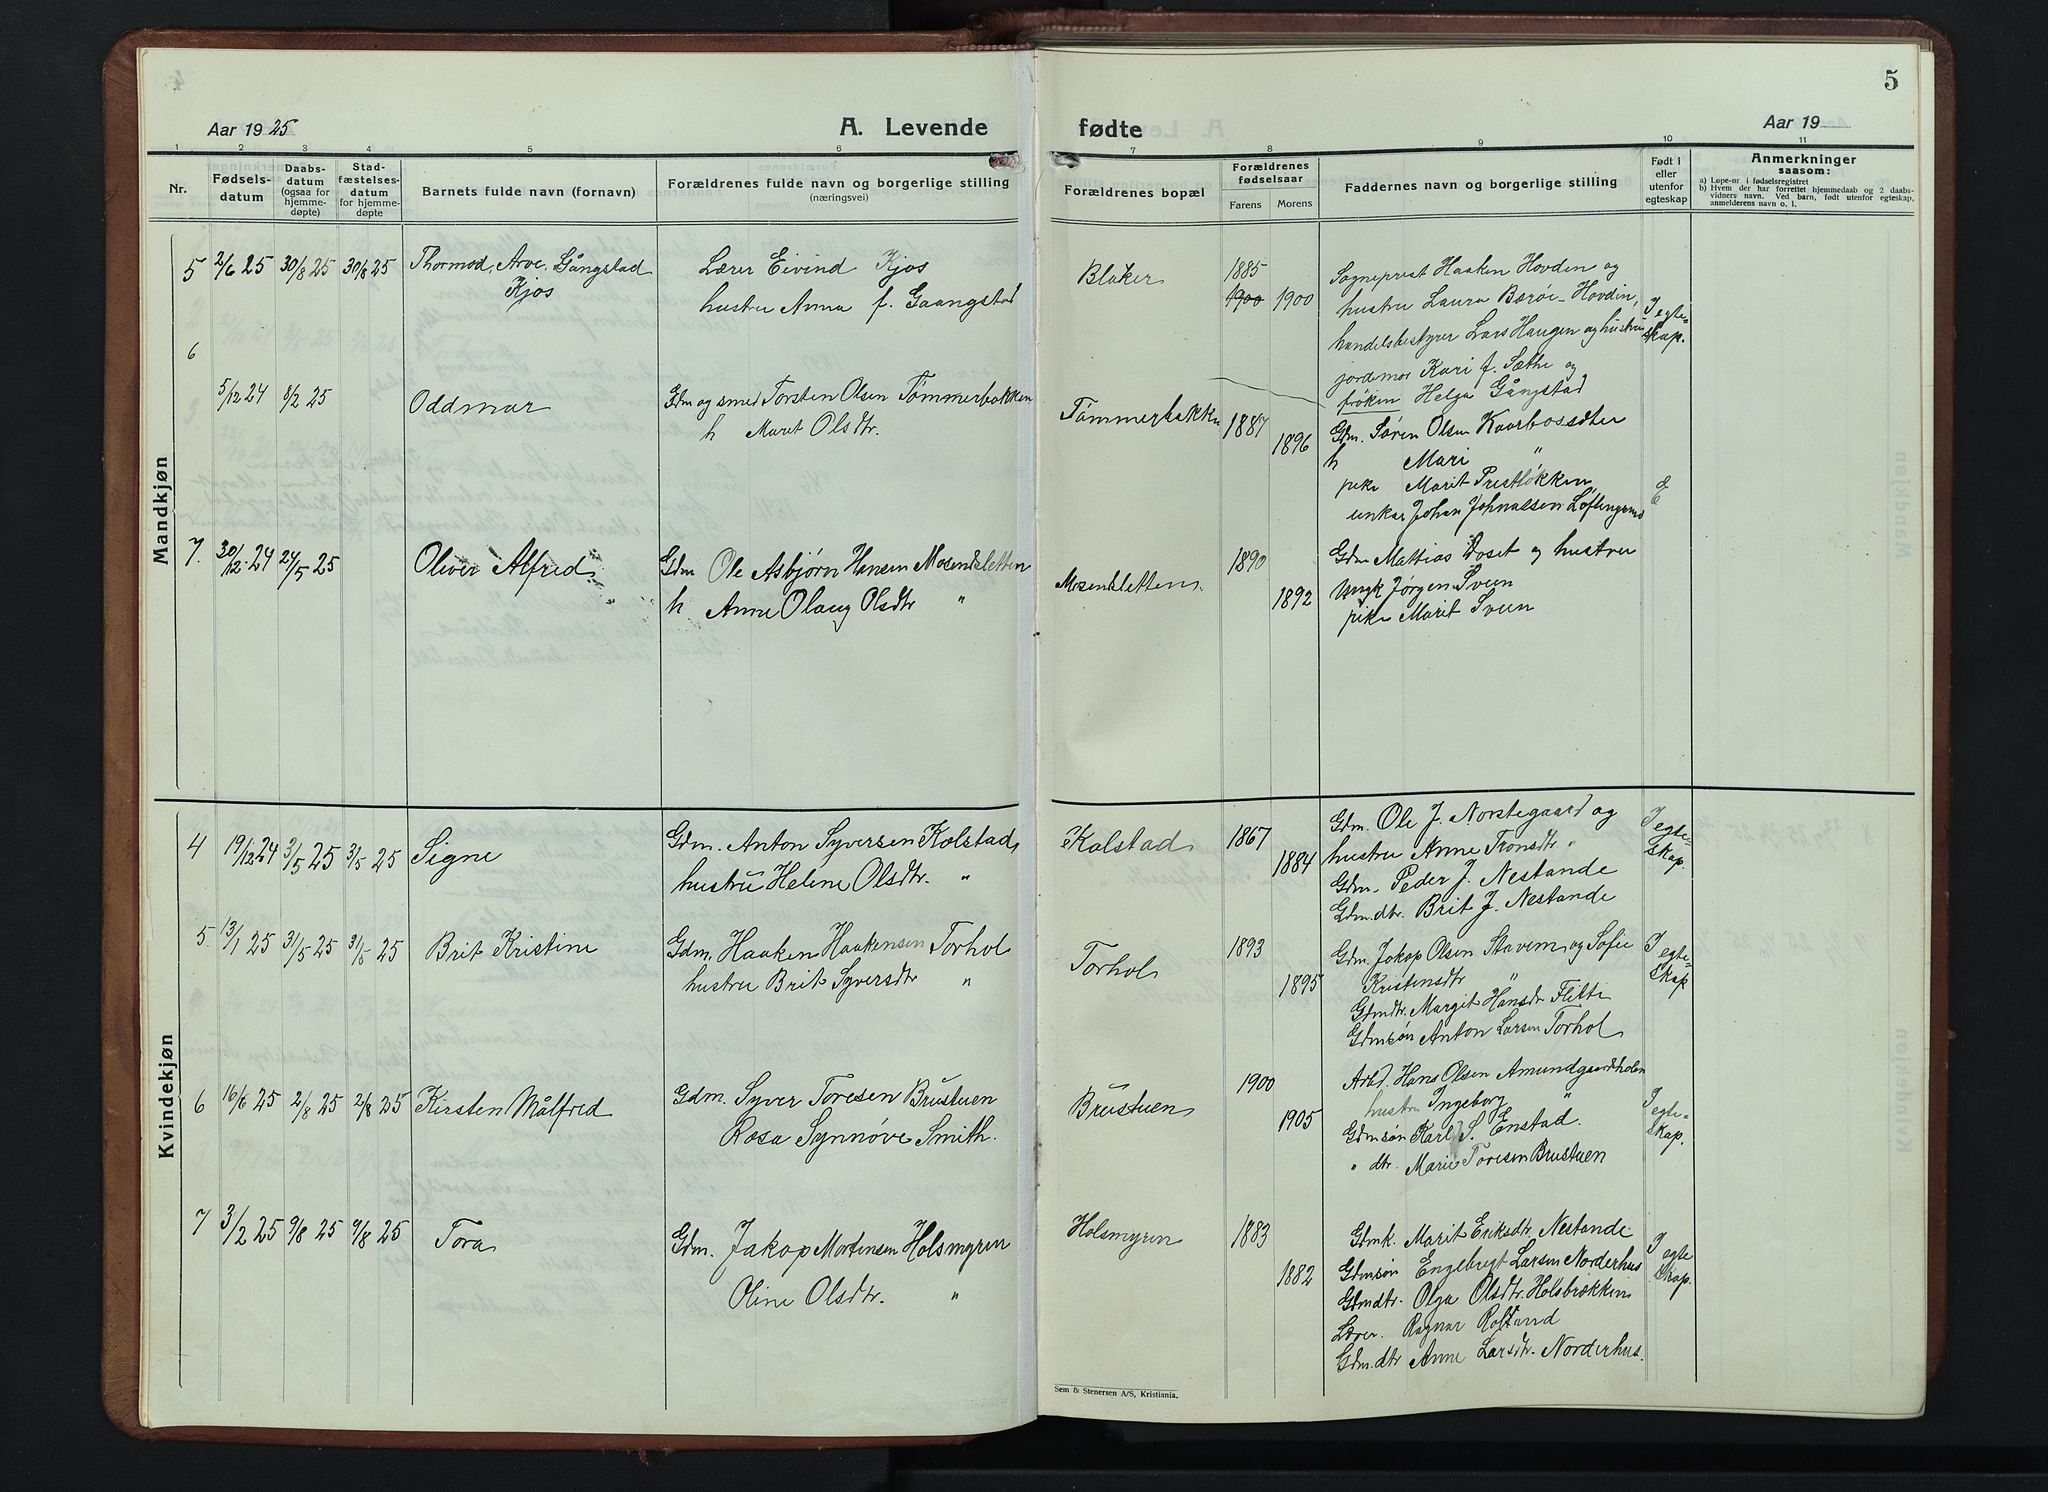 5
Aar 1925
A. Levende fødte
Aar 19
1 2 3 4 5 6 7 8 9 10 11
Nr.
Fødselsdatum
Daabsdatum (ogsaa for hjemmedøpte)
Stadfæstelsesdatum for hjemmedøpte
Barnets fulde navn (fornavn)
Forældrenes fulde navn og borgerlige stilling (næringsvei)
Forældrenes bopæl
Forældrenes fødselsaar
Farens Morens
Faddernes navn og borgerlige stilling
Født i eller utenfor egteskap
Anmerkninger saasom:
a) Løpe-nr. i fødselsregistret
b) Hvem der har forrettet hjemmedaab og 2 daabsvidners navn. Ved barn, født utenfor egteskap, anmelderens navn o. l.
Mandkjøn
5 2/6 25 30/8 25 30/8 25 Thormod, Arve, Gångstad
Kjos
Lærer Eivind Kjos
hustru Anna f. Gaangstad
Blaker
1885
1900 1900
Sogneprest Haaken Hovden og
hustru Laura Bærøe-Hovdin,
handelsbestyrer Lars Haugen og hustru
jordemor Kari f. Sæthe og
frøken Helga Gångstad
I egte=
skap.
6
5/12 24 8/2 25
Oddmar
Gdm og smed Torsten Olsen Tømmerbakken
h Marit Olsdtr.
Tømmerbakken
1887
1896
Gdm. Søren Olsen
h Mari "
pike Marit Prestløkken
unkar Johan Johnassen
E
7. 30/12 24 24/5 25
Oliver Alfred
Gdm Ole Asbjørn Hansen Mosendsletten
h Anne Olaug Olsdtr "
Mosendsletten
1890
1892
Gdm Mattias Doset og hustru
Ungk Jørgen Sveen
pike Marit Sveen
Kvindekjøn
4 19/12 24 3/5 25 3/5 25 Signe
Gdm. Anton Syversen Kolstad,
hustru Helene Olsdtr. "
Kolstad
1867
1884
Gdm. Ole J. Norstegaard og
hustru Anne Tronsdtr "
Gdm. Peder J. Nestande
Gdm.dtr. Brit J. Nestande
I egte=
skap.
5. 13/1 25 31/5 25 31/5 25 Brit Kristine
Gdm. Haaken Haakensen Torhol
hustru Brit Syversdtr "
Torhol
1893
1895
Gdm. Jakop Olsen Stavem og Sofie
Kristensdtr "
Gdmdtr. Margit Hansdr Flitti
Gdmsøn Anton Larsen Torhol
I egte=
skap
6 16/6 25 2/8 25 2/8 25 Kirsten Målfred
Gdm. Syver Toresen Brustuen
Rosa Synnøve Smith.
Brustuen
1900
1905
Arbd. Hans Olsen Amundgaardholen
hustru Ingeborg "
Gdmsøn Karl S. Enstad.
" dtr. Marie Toresen Brustuen
I egte=
skap.
7 3/2 25 9/8 25 9/8 25 Tora
Gdm. Jakop Mortensen Holsmyren
Oline Olsdtr. "
Holsmyren
1883
1882
Gdmk. Marit Eriksdtr. Nestande
Gdmsøn Engebregt Larsen Norderhus
Gdmdtr. Olga Olsdtr. Holsbrækken
Lærer. Ragnar Rolstand
Gdm.dtr Anne Larsdtr. Norderhus.
I egte
skap.
Sem & Stenersen A/S, Kristiania.